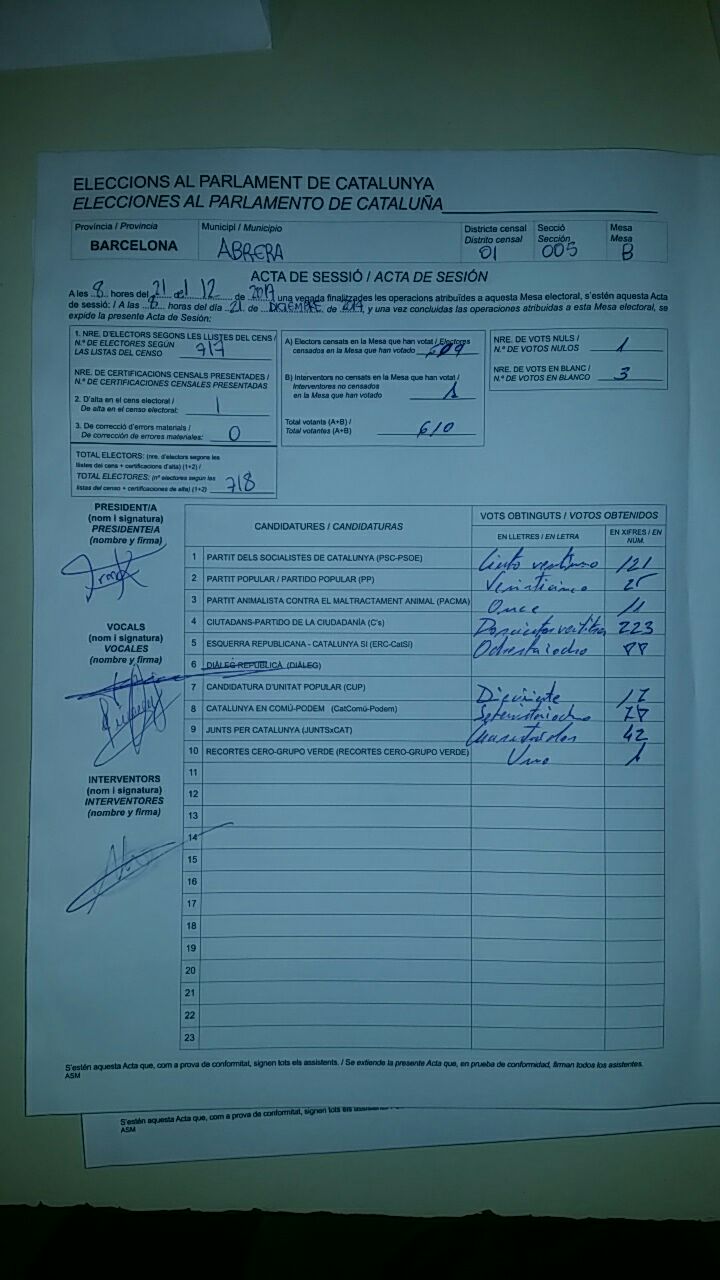 ELECCIONS AL PARLAMENT DE CATALUNYA
ELECCIONES AL PARLAMENTO DE CATALUÑA
Província / Provincia
BARCELONA
Municipi / Municipio
ABRERA
Districte censal
Distrito censal
01
Secció
Sección
005
Mesa
Mesa
B
ACTA DE SESSIÓ / ACTA DE SESIÓN
A les 8 hores del 21 del 12 de 2017 una vegada finalitzades les operacions atribuïdes a aquesta Mesa electoral, s'estén aquesta Acta
de sessió: / A las 8 horas del día 21 de DICIEMBRE de 2017 y una vez concluidas las operaciones atribuidas a esta Mesa electoral, se
expide la presente Acta de Sesión:
1. NRE. D'ELECTORS SEGONS LES LLISTES DEL CENS /
N.º DE ELECTORES SEGÚN
LAS LISTAS DEL CENSO 717
NRE. DE CERTIFICACIONS CENSALS PRESENTADES /
N.º DE CERTIFICACIONES CENSALES PRESENTADAS
2. D'alta en el cens electoral /
De alta en el censo electoral: 1
3. De correcció d'errors materials /
De corrección de errores materiales: 0
TOTAL ELECTORS: (nre. d'electors segons les
llistes del cens + certificacions d'alta) (1+2) /
TOTAL ELECTORES: (nº electores según las
listas del censo + certificaciones de alta) (1+2) 718
A) Electors censats en la Mesa que han votat / Electores
censados en la Mesa que han votado 609
B) Interventors no censats en la Mesa que han votat /
Interventores no censados
en la Mesa que han votado 1
Total votants (A+B) /
Total votantes (A+B) 610
NRE. DE VOTS NULS /
N.º DE VOTOS NULOS 1
NRE. DE VOTS EN BLANC /
N.º DE VOTOS EN BLANCO 3
PRESIDENT/A
(nom i signatura)
PRESIDENTE/A
(nombre y firma)
VOCALS
(nom i signatura)
VOCALES
(nombre y firma)
INTERVENTORS
(nom i signatura)
INTERVENTORES
(nombre y firma)
CANDIDATURES / CANDIDATURAS
VOTS OBTINGUTS / VOTOS OBTENIDOS
EN LLETRES / EN LETRA
EN XIFRES / EN NÚM.
1 PARTIT DELS SOCIALISTES DE CATALUNYA (PSC-PSOE) Ciento ventiuno 121
2 PARTIT POPULAR / PARTIDO POPULAR (PP) Veinticinco 25
3 PARTIT ANIMALISTA CONTRA EL MALTRACTAMENT ANIMAL (PACMA) Once 11
4 CIUTADANS-PARTIDO DE LA CIUDADANÍA (C's) 223
5 ESQUERRA REPUBLICANA - CATALUNYA SÍ (ERC-CatSí) Ochentaiocho 88
6 DIÀLEG REPUBLICÀ (DIÀLEG)
7 CANDIDATURA D'UNITAT POPULAR (CUP) 17
8 CATALUNYA EN COMÚ-PODEM (CatComú-Podem) Setentaiocho 78
9 JUNTS PER CATALUNYA (JUNTSxCAT) Cuarentaidos 42
10 RECORTES CERO-GRUPO VERDE (RECORTES CERO-GRUPO VERDE) Uno 1
11
12
13
14
15
16
17
18
19
20
21
22
23
S'estén aquesta Acta que, com a prova de conformitat, signen tots els assistents. / Se extiende la presente Acta que, en prueba de conformidad, firman todos los asistentes.
ASM
S'estén aquesta Acta que, com a prova de conformitat, signen tots els assistents.
ASM